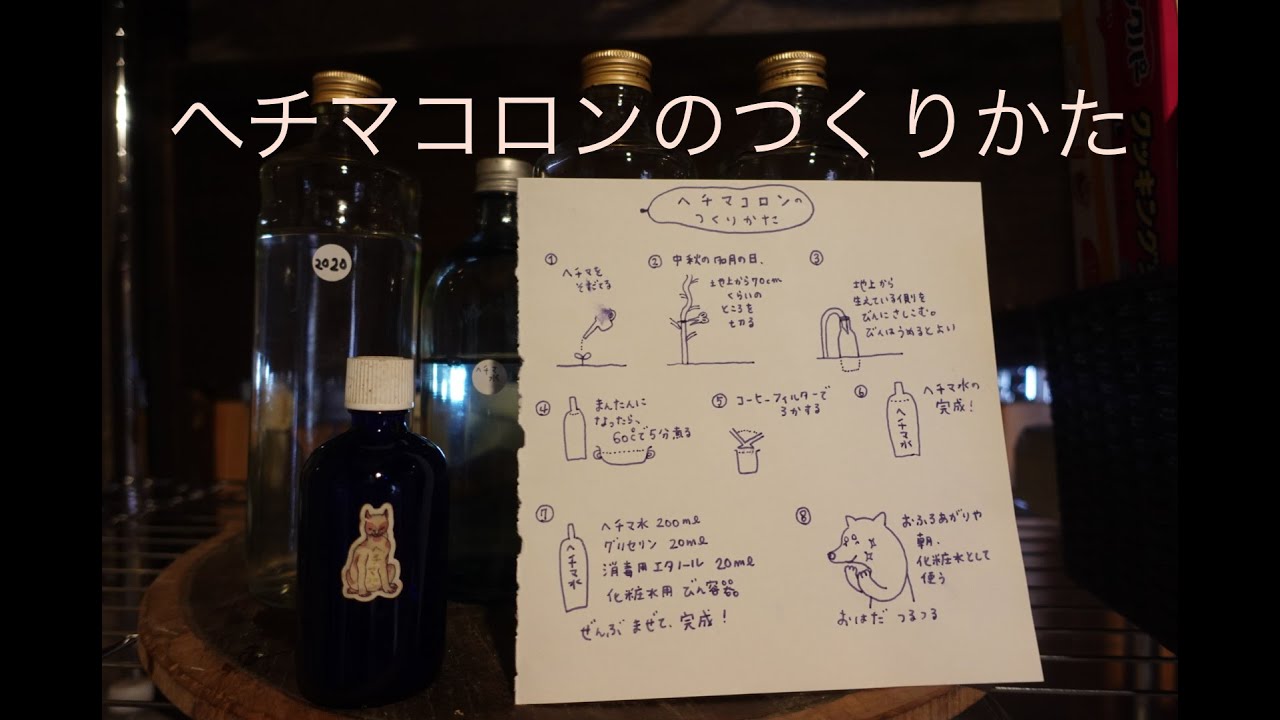 ヘチマコロンのつくりかた
2020
ヘチマ
水
クッキング
ヘチマコロンの
つくりかた
①
ヘチマを
そだてる
②
中秋の明月の日、
地上から70cm
くらいの
ところを
切る
③
地上から
生えている側を
びんにさしこむ。
びんはうめるとよい
④
まんたんに
なったら、
60℃で5分煮る
⑤
コーヒーフィルターで
ろかする
⑥
ヘチマ水の
完成！
ヘチマ水
⑦
ヘチマ水 200ml
グリセリン 20ml
消毒用エタノール 20ml
化粧水用 びん容器
ぜんぶ まぜて、完成！
ヘチマ水
⑧
おふろあがりや
朝、
化粧水として
使う
おはだ つるつる